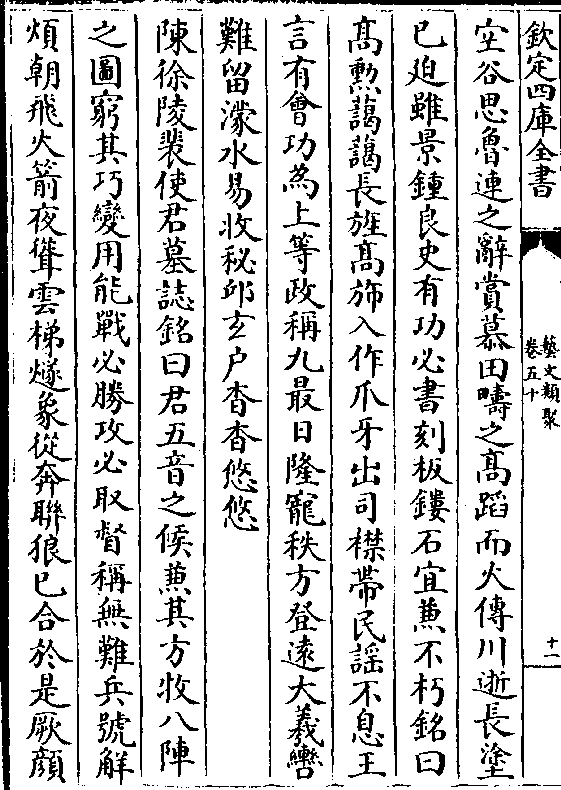 欽定四庫全書
藝文類聚
卷五十
十一
空谷思魯連之辭賞慕田疇之髙蹈而火傳川逝長塗
已迫雖景鍾良史有功必書刻板鏤石宜蕪不朽銘曰
髙勲藹藹長旌髙斾入作爪牙出司襟帶民謡不息王
言有會功為上等政稱九最日隆寵秩方登逺大羲轡
難留濛水易收秘邱玄户杳杳悠悠
陳徐陵裴使君墓誌銘曰君五音之候蕪其方牧八陣
之圖窮其巧變用能戰必勝攻必取督稱無難兵號解
煩朝飛火箭夜聳雲梯燧象從奔聨狼已合於是厥顔